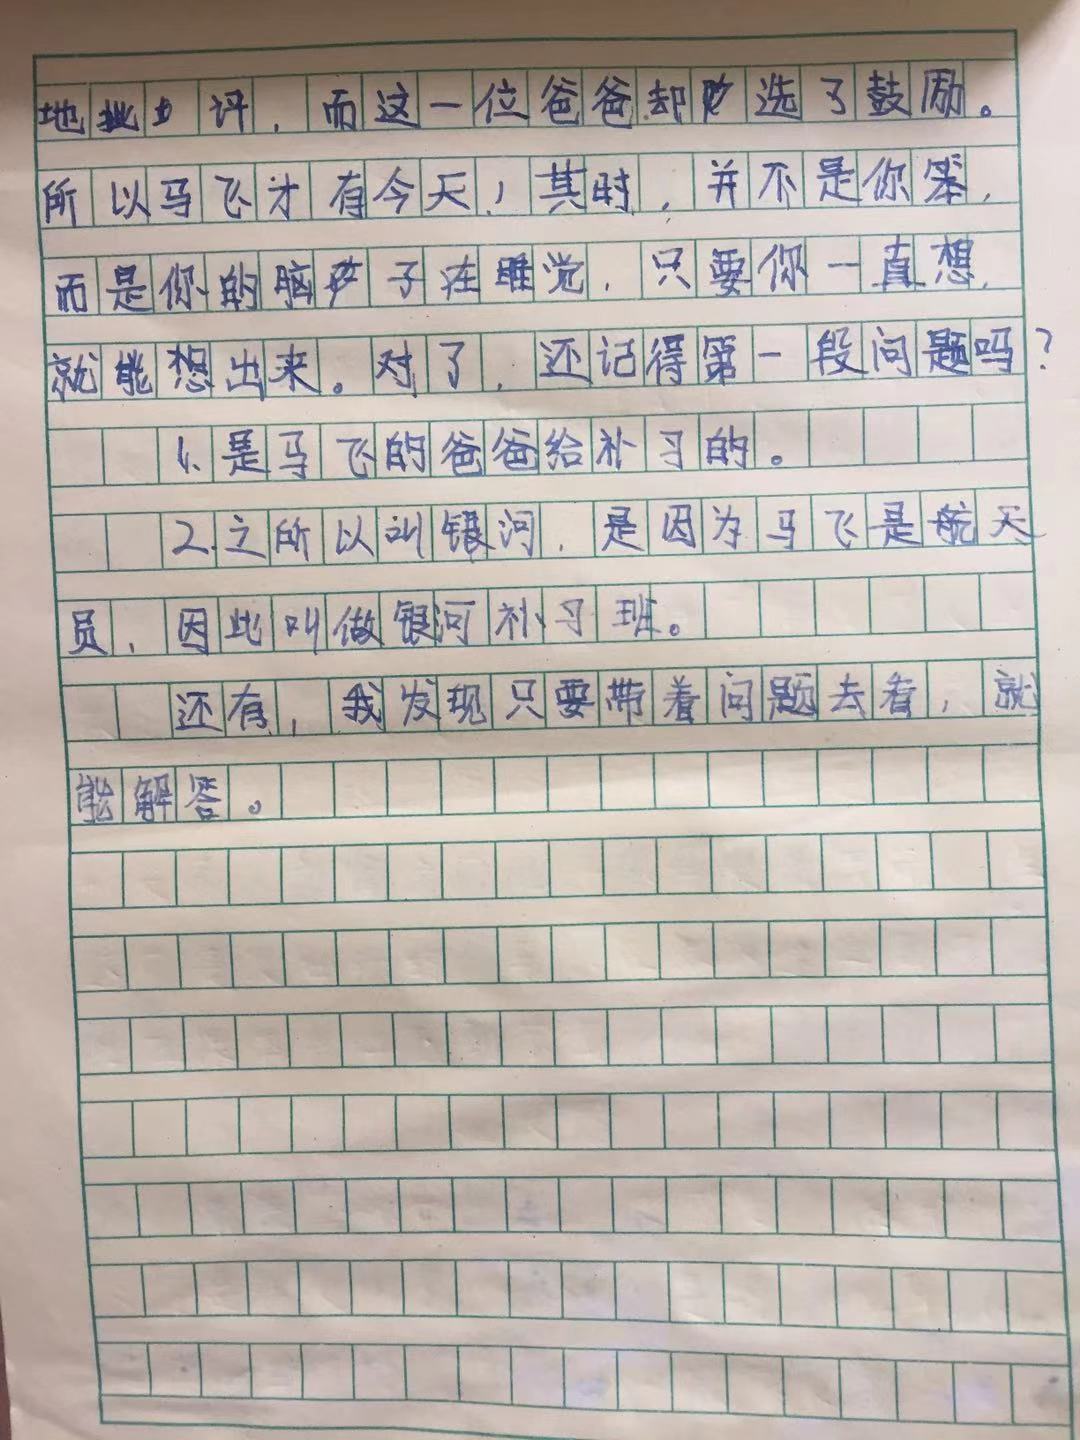 地 评,而这一位爸爸却选了鼓励。
所以马飞才有今天!其时,并不是你笨,
而是你的脑子在睡觉,只要你一直想,
就能想出来。对了,还记得第一段问题吗?
1.是马飞的爸爸给补习的。
2.之所以叫银河,是因为马飞是航天
员,因此叫做银河补习班。
还有,我发现只要带着问题去看,就
能解答。